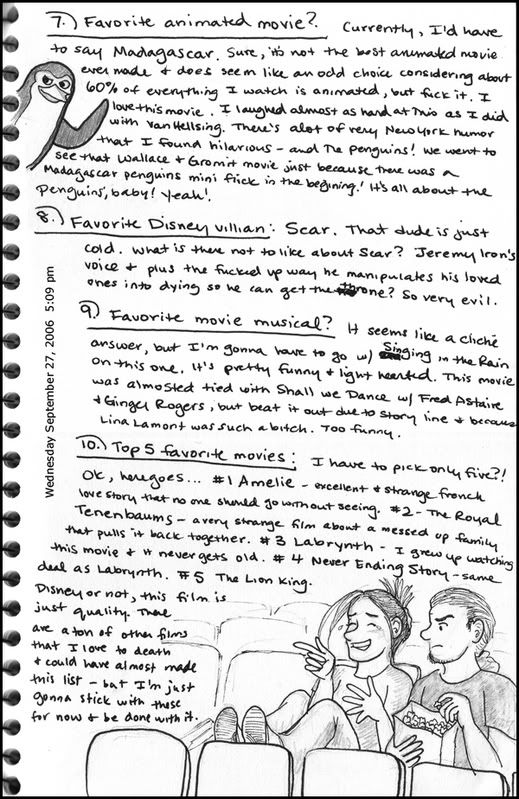 7.) Favorite animated movie?. Currently, I'd have
to say Madagascar. Sure, it's not the best animated movie
ever made & does seem like an odd choice considering about
60% of everything I watch is animated, but fuck it. I
love this movie. I laughed almost as hard at this as I did
with Van Hellsing. There's alot of very New York humor
that I found hilarious - and The penguins! We went to
see that Wallace & Gromit movie just because there was a
Madagascar penguins mini flick in the begining! It's all about the
Penguins, baby! Yeah!
8.) Favorite Disney villian: Scar. That dude is just
cold. What is there not to like about Scar? Jeremy Iron's
voice & plus the fucked up way he manipulates his loved
ones into dying so he can get the throne? So very evil.
9.) Favorite movie musical? It seems like a cliché
answer, but I'm gonna have to go w/ Singing in the Rain
on this one. It's pretty funny & light hearted. This movie
was almosted tied with Shall we Dance w/ Fred Astaire
& Ginger Rogers, but beat it out due to story line & because
Lina Lamont was such a bitch. Too funny.
10.) Top 5 favorite movies: I have to pick only five?!
Ok, here goes... #1 Amelie - excellent & strange french
love story that no one should go without seeing. #2 - The Royal
Tenenbaums - a very strange film about a messed up family
that pulls it back together. #3 Labrynth - I grew up watching
this movie & it never gets old. #4 Never Ending Story - same
deal as Labrynth. #5 The Lion King.
Disney or not, this film is
just quality. There
are a ton of other films
that I love to death
& could have almost made
this list - but I'm just
gonna stick with these
for now & be done with it.
Wednesday September 27, 2006 5:09 pm